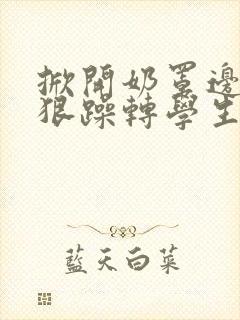 掀開奶罩邊
狠躁轉學生
藍天白菜